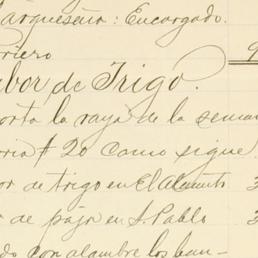 arqueseña: Encargado.
rriero
abor de Trigo.
orta la raya de la seman
oria $20 como sigue
or de trigo en El Alamito 3
or de paja en S. Pablo 3
do con alambre los ban-